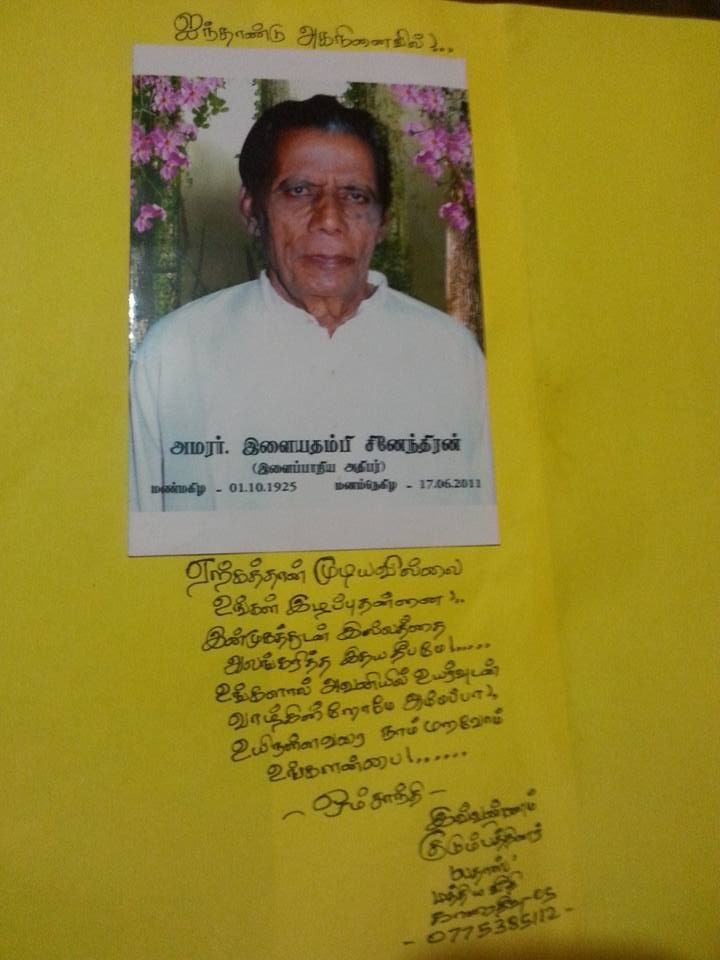 ஐந்தாண்டு அகநினைவில்!...
அமரர். இளையதம்பி சினேந்திரன்
(இளைப்பாறிய அதிபர்)
மண்மகிழ - 01.10.1925 மனம்நெகிழ - 17.06.2011
ஏற்கத்தான் முடியவில்லை
உங்கள் இழப்புதன்னை!..
இன்முகத்துடன் இல்லத்தை
அலங்கரித்த இதய தீபமே!.....
உங்களால் அவனியில் உயர்வுடன்
வாழ்கின்றோமே அப்பப்பா!,
உயிருள்ளவரை நாம் மறவோம்
உங்களன்பை!......
- ஓம் சாந்தி -
இவ்வண்ணம்
குடும்பத்தினர்
மத்திய வீதி
-05
- 0775385112 -